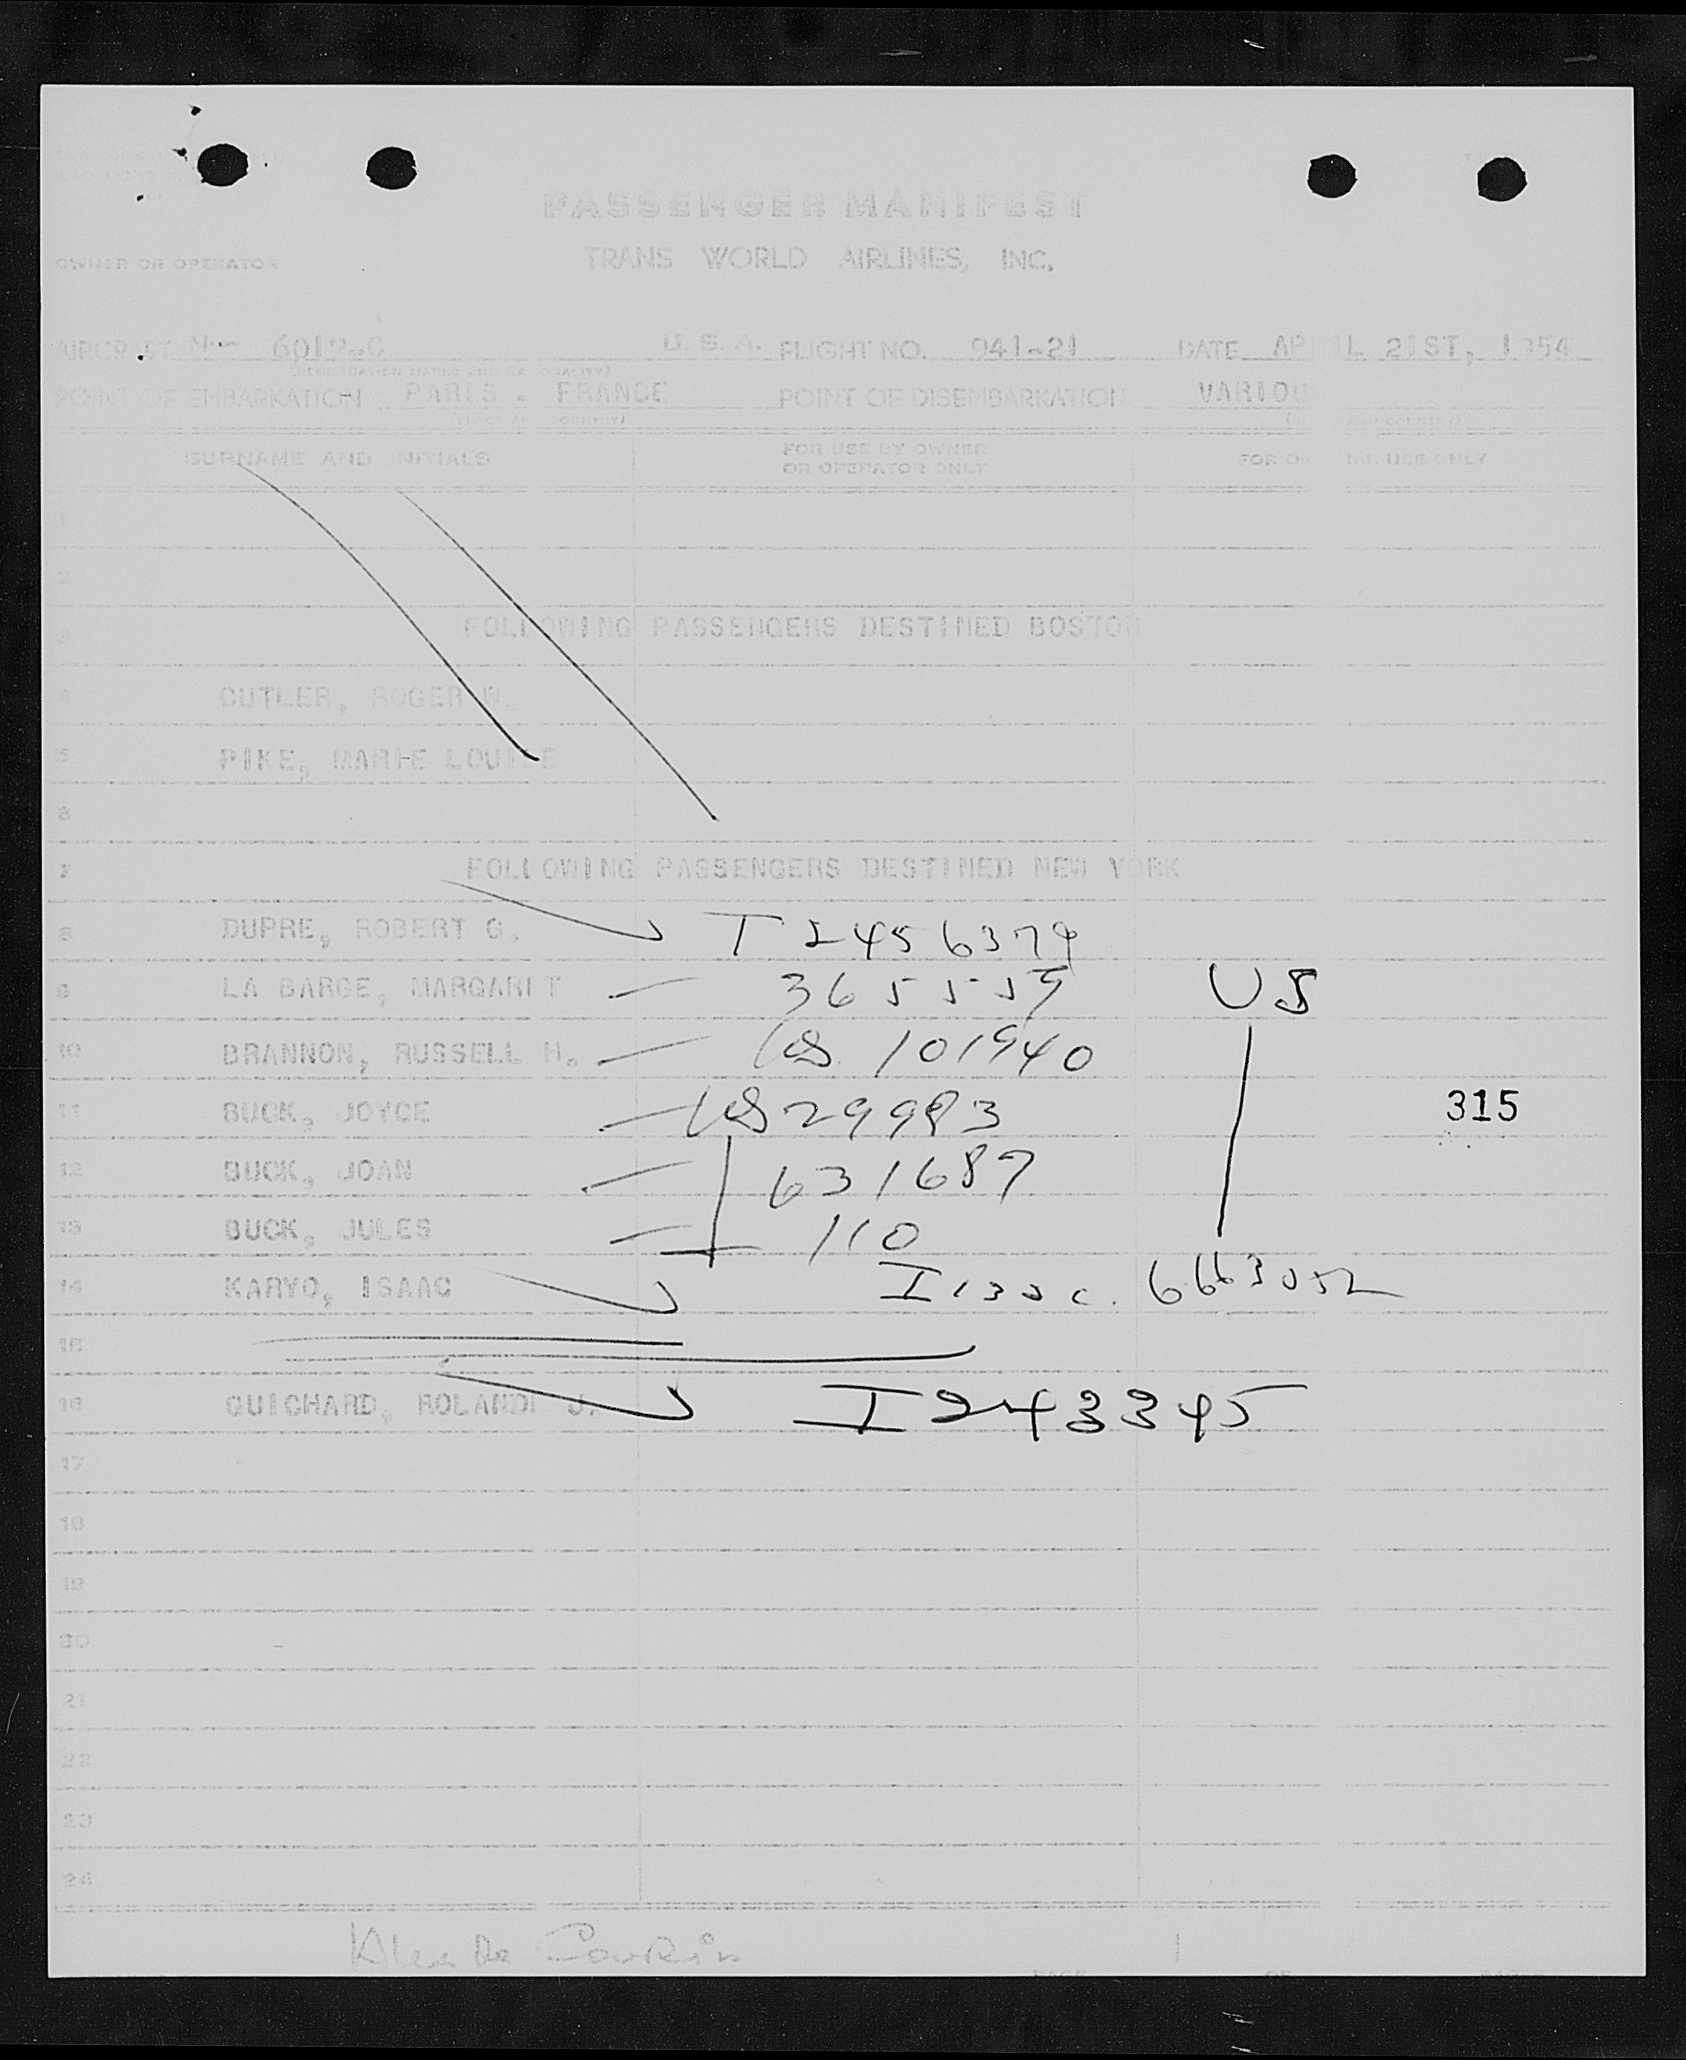 PASSENGER MANIFEST
OWNER OR OPERATOR TRANS WORLD AIRLINES, INC.
AIRCRAFT N- 6019-C U. S. A. FLIGHT NO. 941-21 DATE APRIL 21ST, 1954
POINT OF EMBARKATION PARIS . FRANCE POINT OF DISEMBARKATION VARIOU
SURNAME AND INITIALS FOR USE BY OWNER OR OPERATOR ONLY FOR OFFICIAL USE ONLY
1
2
3 FOLLOWING PASSENGERS DESTINED BOSTON
4 CUTLER, ROGER W.
5 PIKE, MARIE LOUISE
6
7 FOLLOWING PASSENGERS DESTINED NEW YORK
8 DUPRE, ROBERT G. I 2456379
9 LA BARGE, MARGARIT 3655559 US
10 BRANNON, RUSSELL H. US 101940
11 BUCK, JOYCE US 29983 315
12 BUCK, JOAN 631687
13 BUCK, JULES 110
14 KARYO, ISAAC
15
16 QUICHARD, ROLAND J. I 243345
17
18
19
20
21
22
23
24